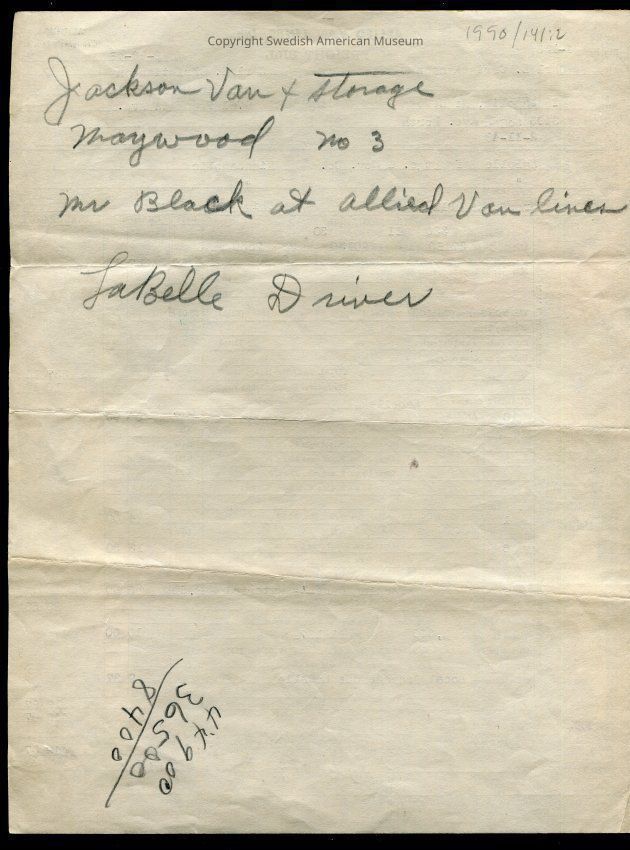 Copyright Swedish American Museum
1990/141:2
Jackson Van + Storage
Maywood no 3
Mr Black at Allied Van lines
LaBelle Driver
36500
8400